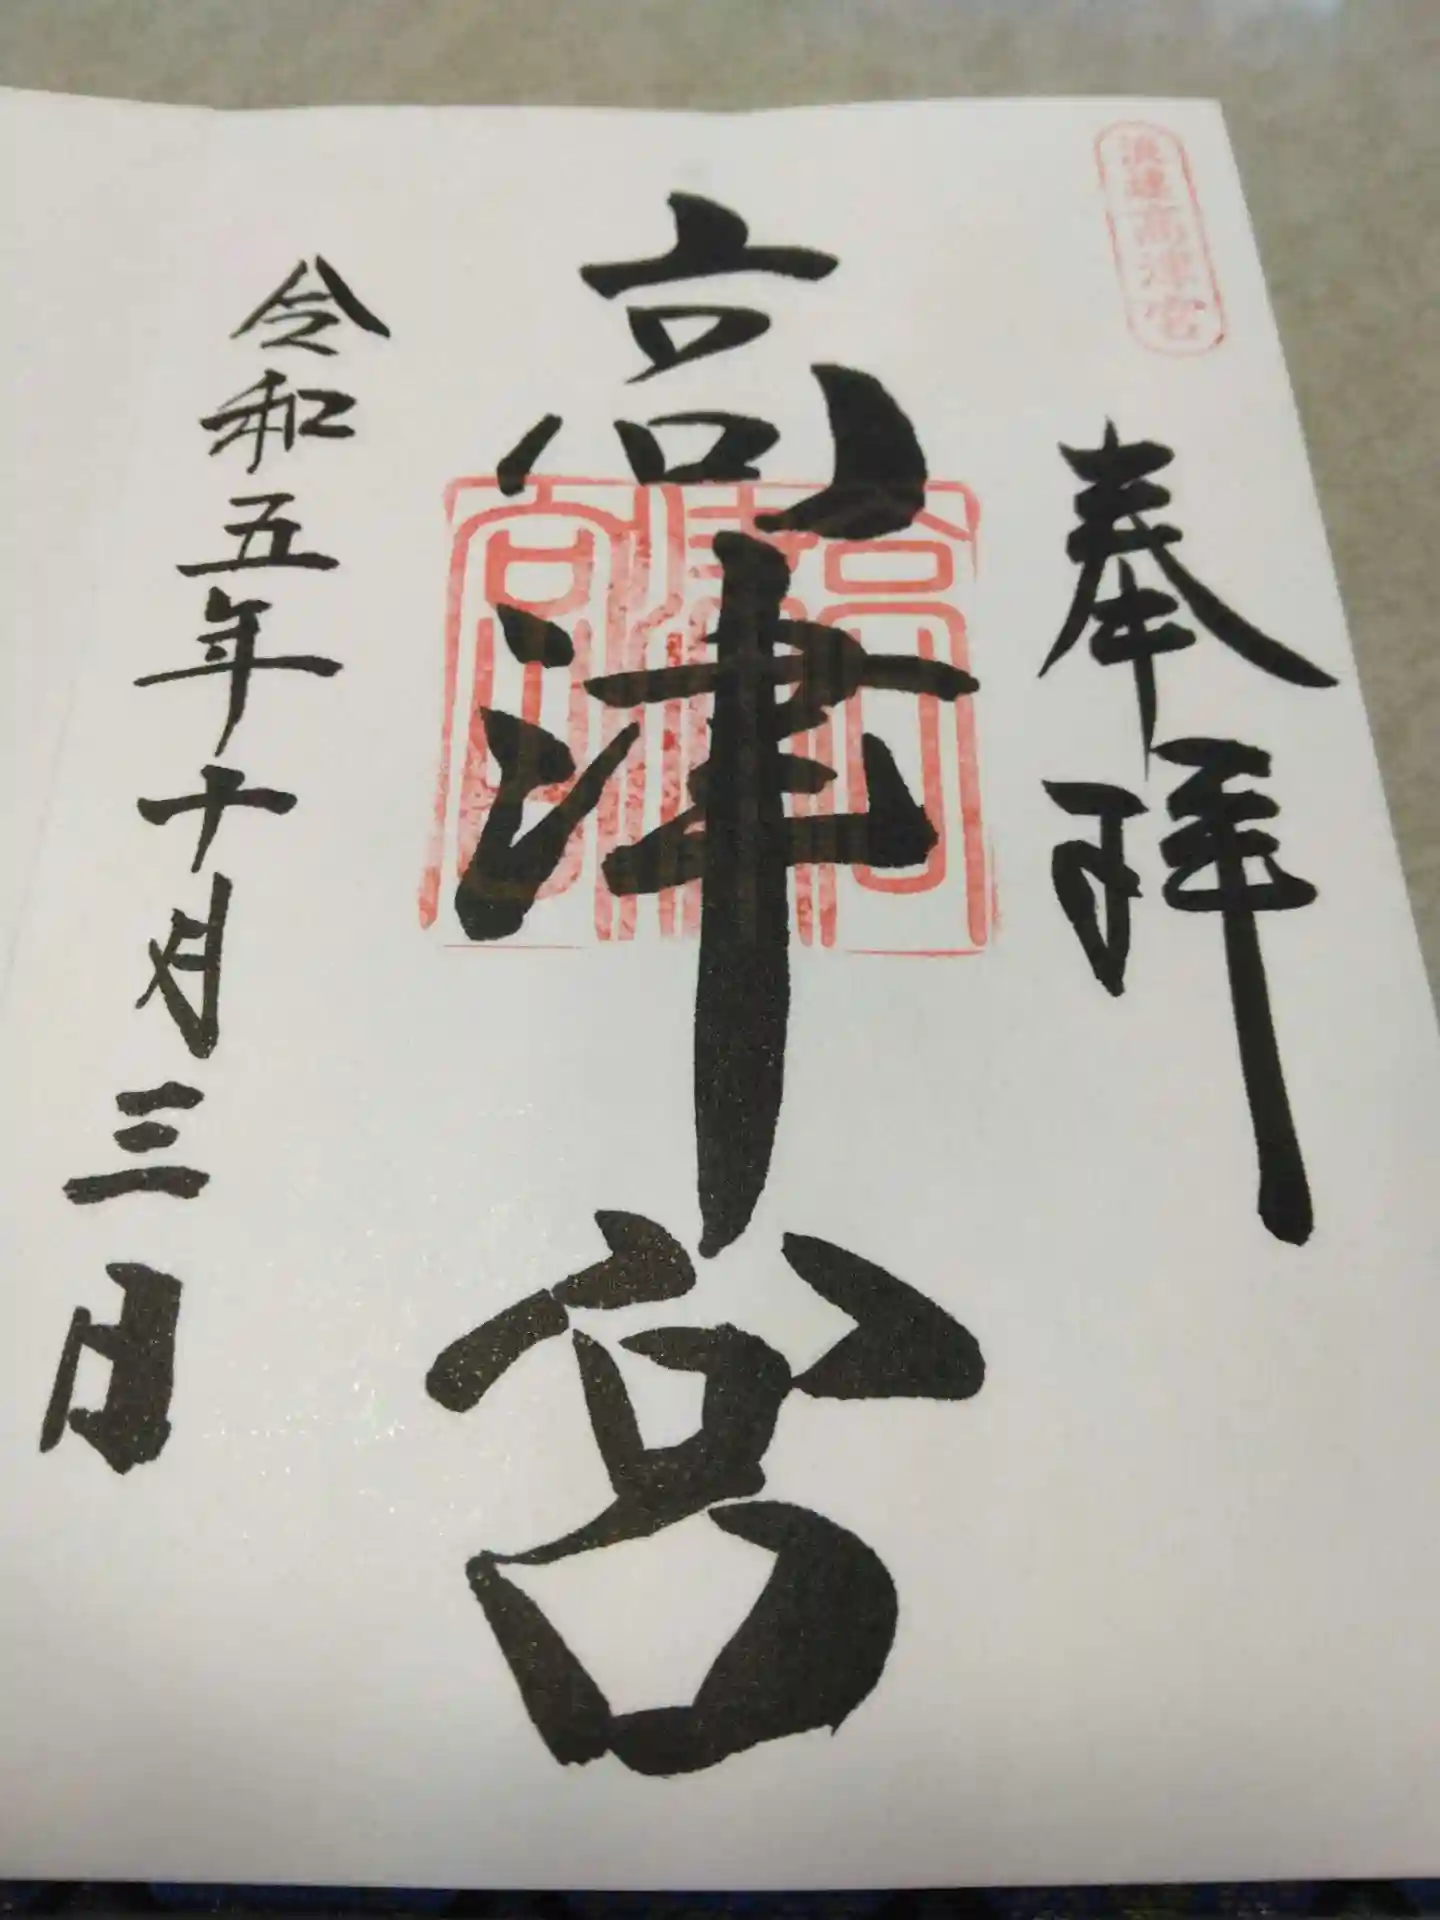 浪速高津宮
奉拝
高津宮
高津宮
令和五年十月三日